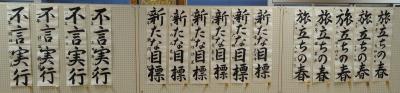 不言実行
不言実行
不言実行
不言実行
新たな目標
新たな目標
新たな目標
新たな目標
新たな目標
新たな目標
旅立ちの春
旅立ちの春
旅立ちの春
旅立ちの春
旅立ちの春